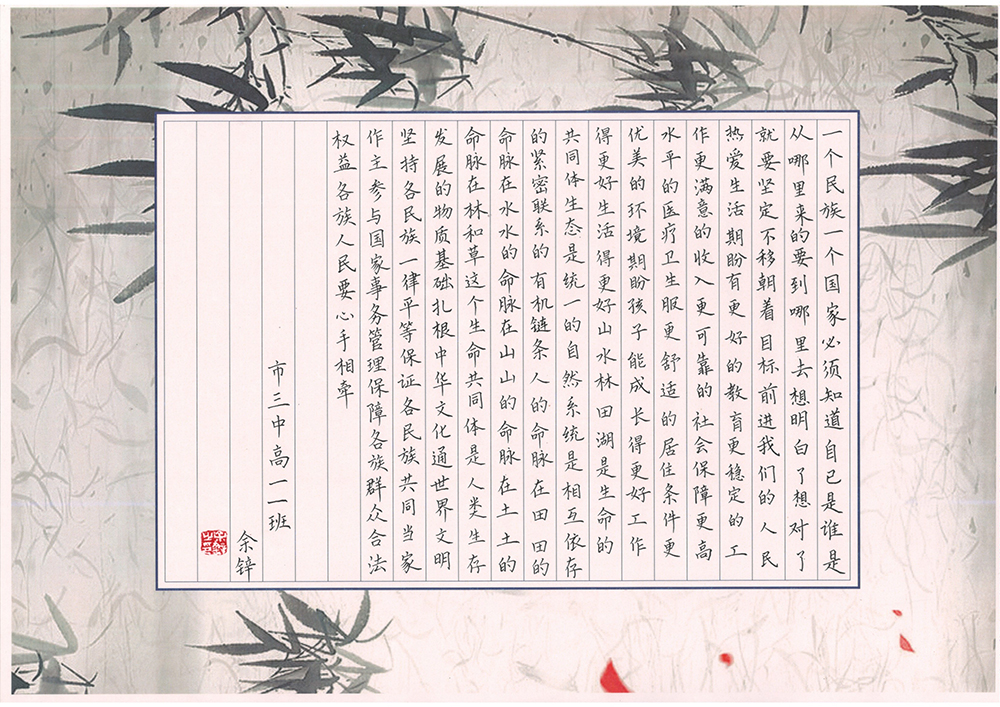 一个民族一个国家必须知道自己是谁是
从哪里来的要到哪里去想明白了想对了
就要坚定不移朝着目标前进我们的人民
热爱生活期盼有更好的教育更稳定的工
作更满意的收入更可靠的社会保障更高
水平的医疗卫生服更舒适的居住条件更
优美的环境期盼孩子能成长得更好工作
得更好生活得更好山水林田湖是生命的
共同体生态是统一的自然系统是相互依存
的紧密联系的有机链条人的命脉在田田的
命脉在水水的命脉在山山的命脉在土土的
命脉在林和草这个生命共同体是人类生存
发展的物质基础扎根中华文化通世界文明
坚持各民族一律平等保证各民族共同当家
作主参与国家事务管理保障各族群众合法
权益各族人民要心手相牵
市三中高一二班
余锌